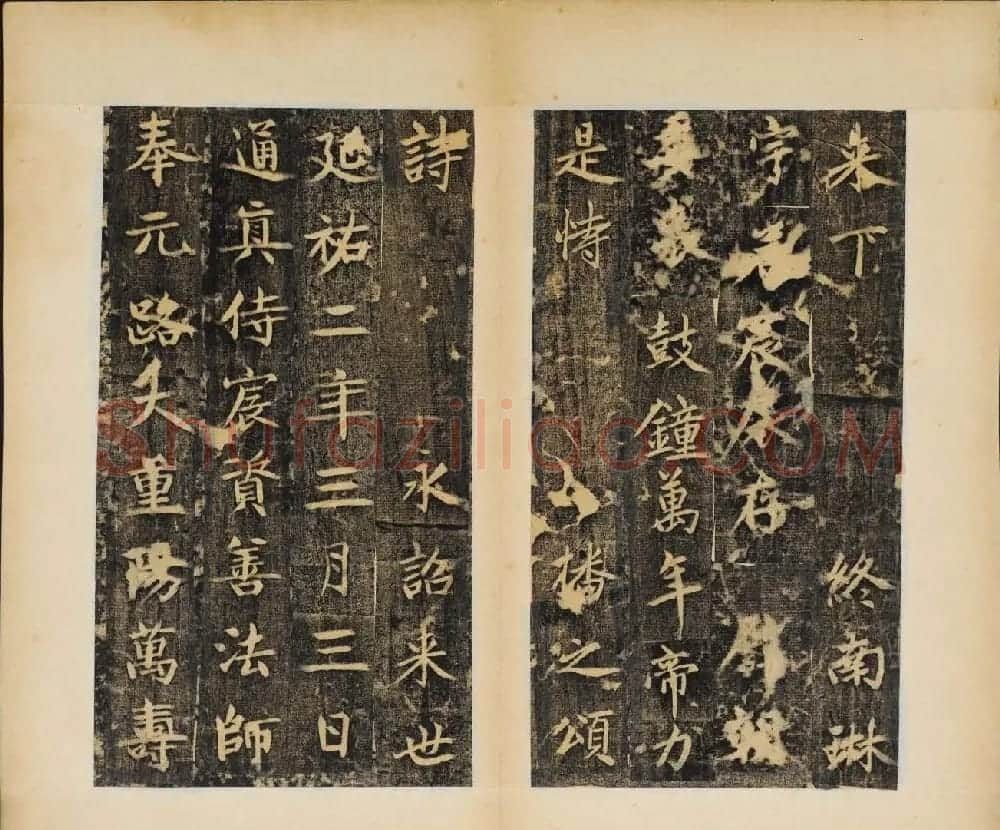 来下 終南琳
宇 宸 存
鼓鐘萬年帝力
是恃 播之頌
詩 永詔来世
延祐二年三月三日
通真侍宸資善法師
奉元路大重陽萬壽
Shufaziliao.COM